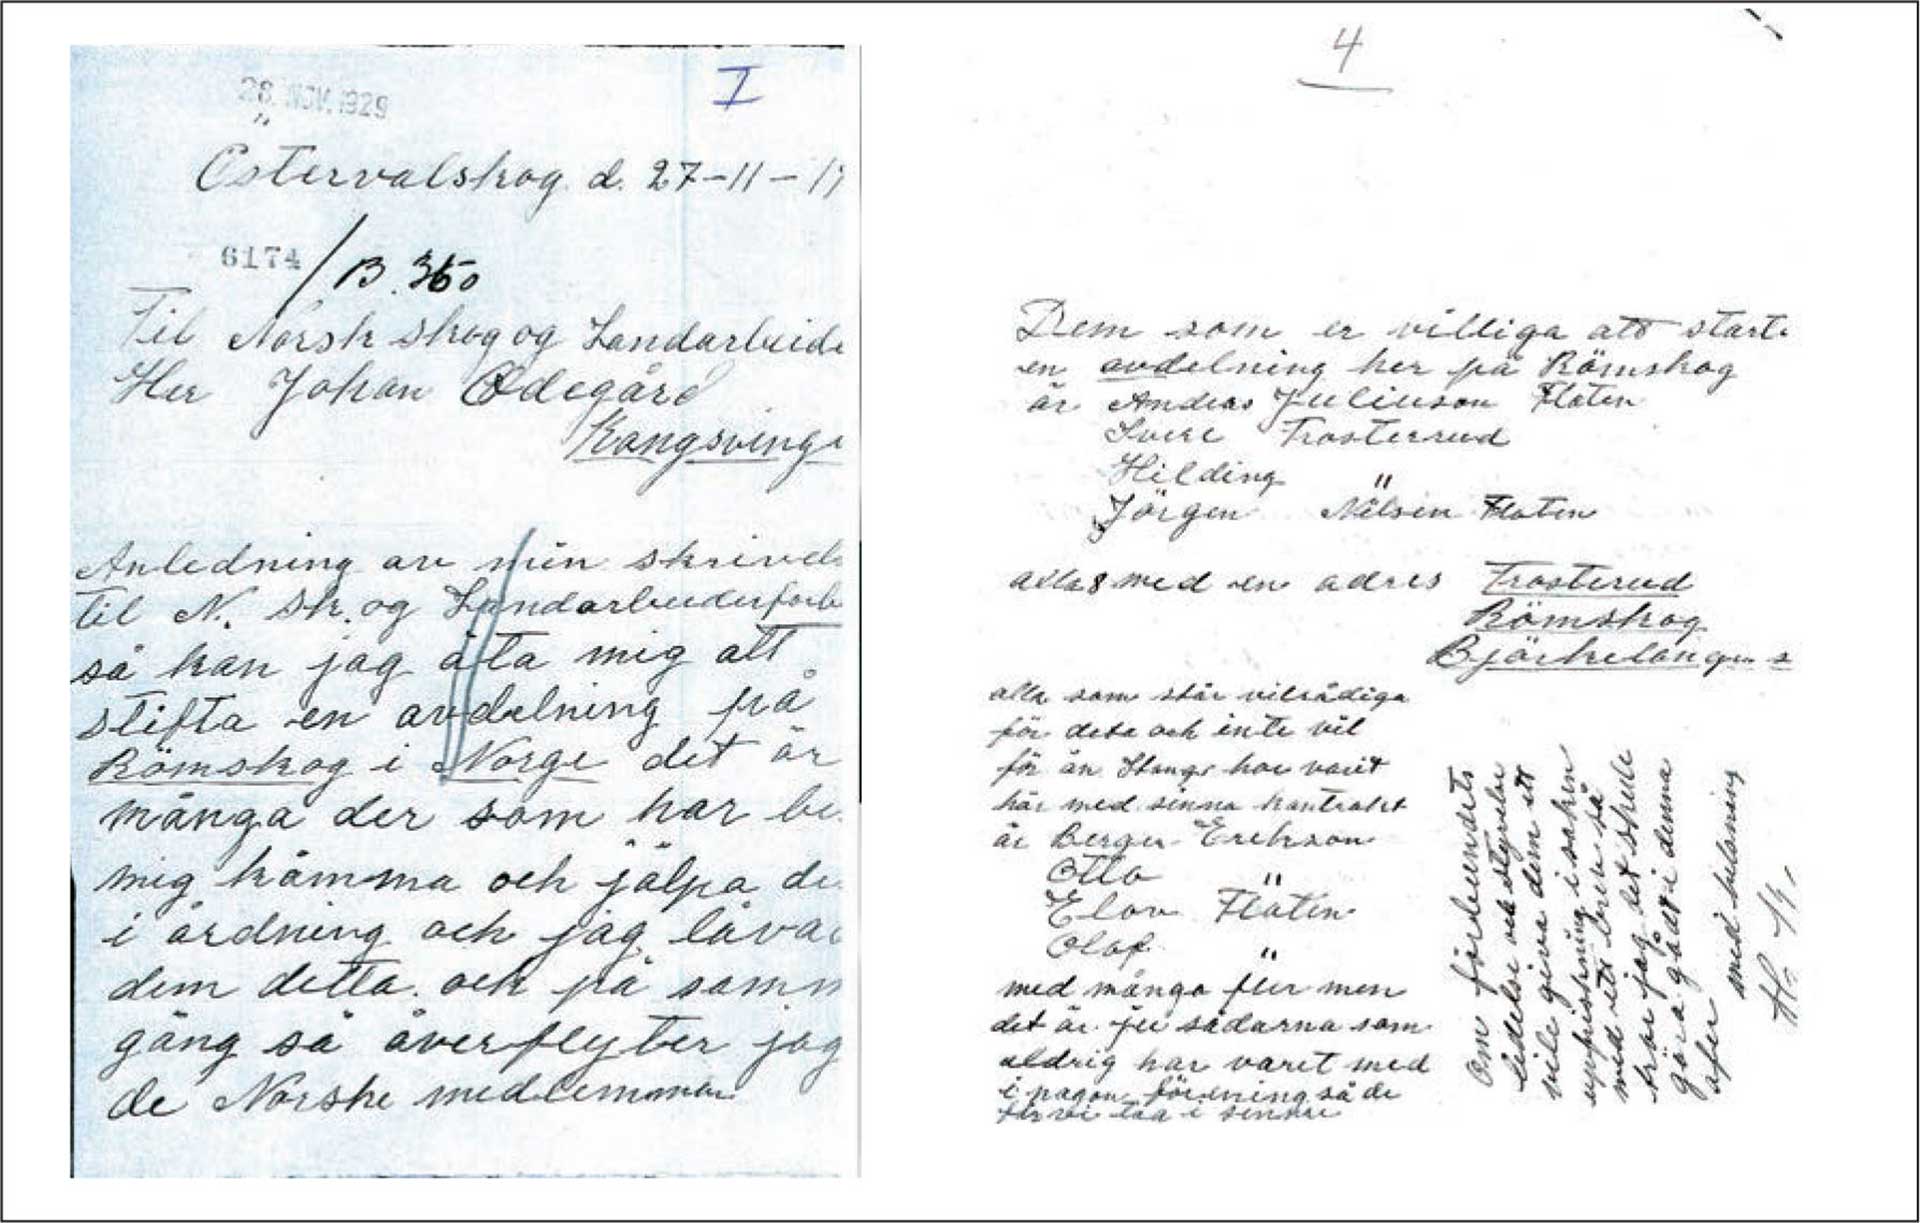 I
28. NOV. 1929
Östervalskog d. 27-11-19
6174/B.350
Til Norsk skog og Landarbeide
Her Johan Ødegård
Kongsvinge
Anledning av min skrivels
til N. sk. og Landarbeiderforb
så kan jag åta mig att
stifta en avdelning på
Römskog i Norge det är
många der som har be
mig kämma och jälpa de
i årdning och jag låvad
dem detta. och på samm
gång så överflyter jag
de Norske medlemmar
4
Dem som er villiga att starta
en avdelning her på Römskog
är Andras Juliuson Flåten
Svere Trosterrud
Hilding "
Jörgen Nilsen Flåten
alla 8 med en adres Trosterud
Römskog
Björkelangen s
alla som står vilrådiga
för deta och inte vil
för än Stangs har varit
här med sinna kontrakt
är Berger Erekson
Otto "
Elov Flåten
Olof "
med många fler men
det är ju sådarna som
aldrig har varit med
i någon förening så de
får vi taa i sennre
Om förbundets
ledelse och styrelse
vile giva dem ett
uppriskning i saken
med ett brev så
tror jag det skule
göra gått i denna
afer
med hälsning